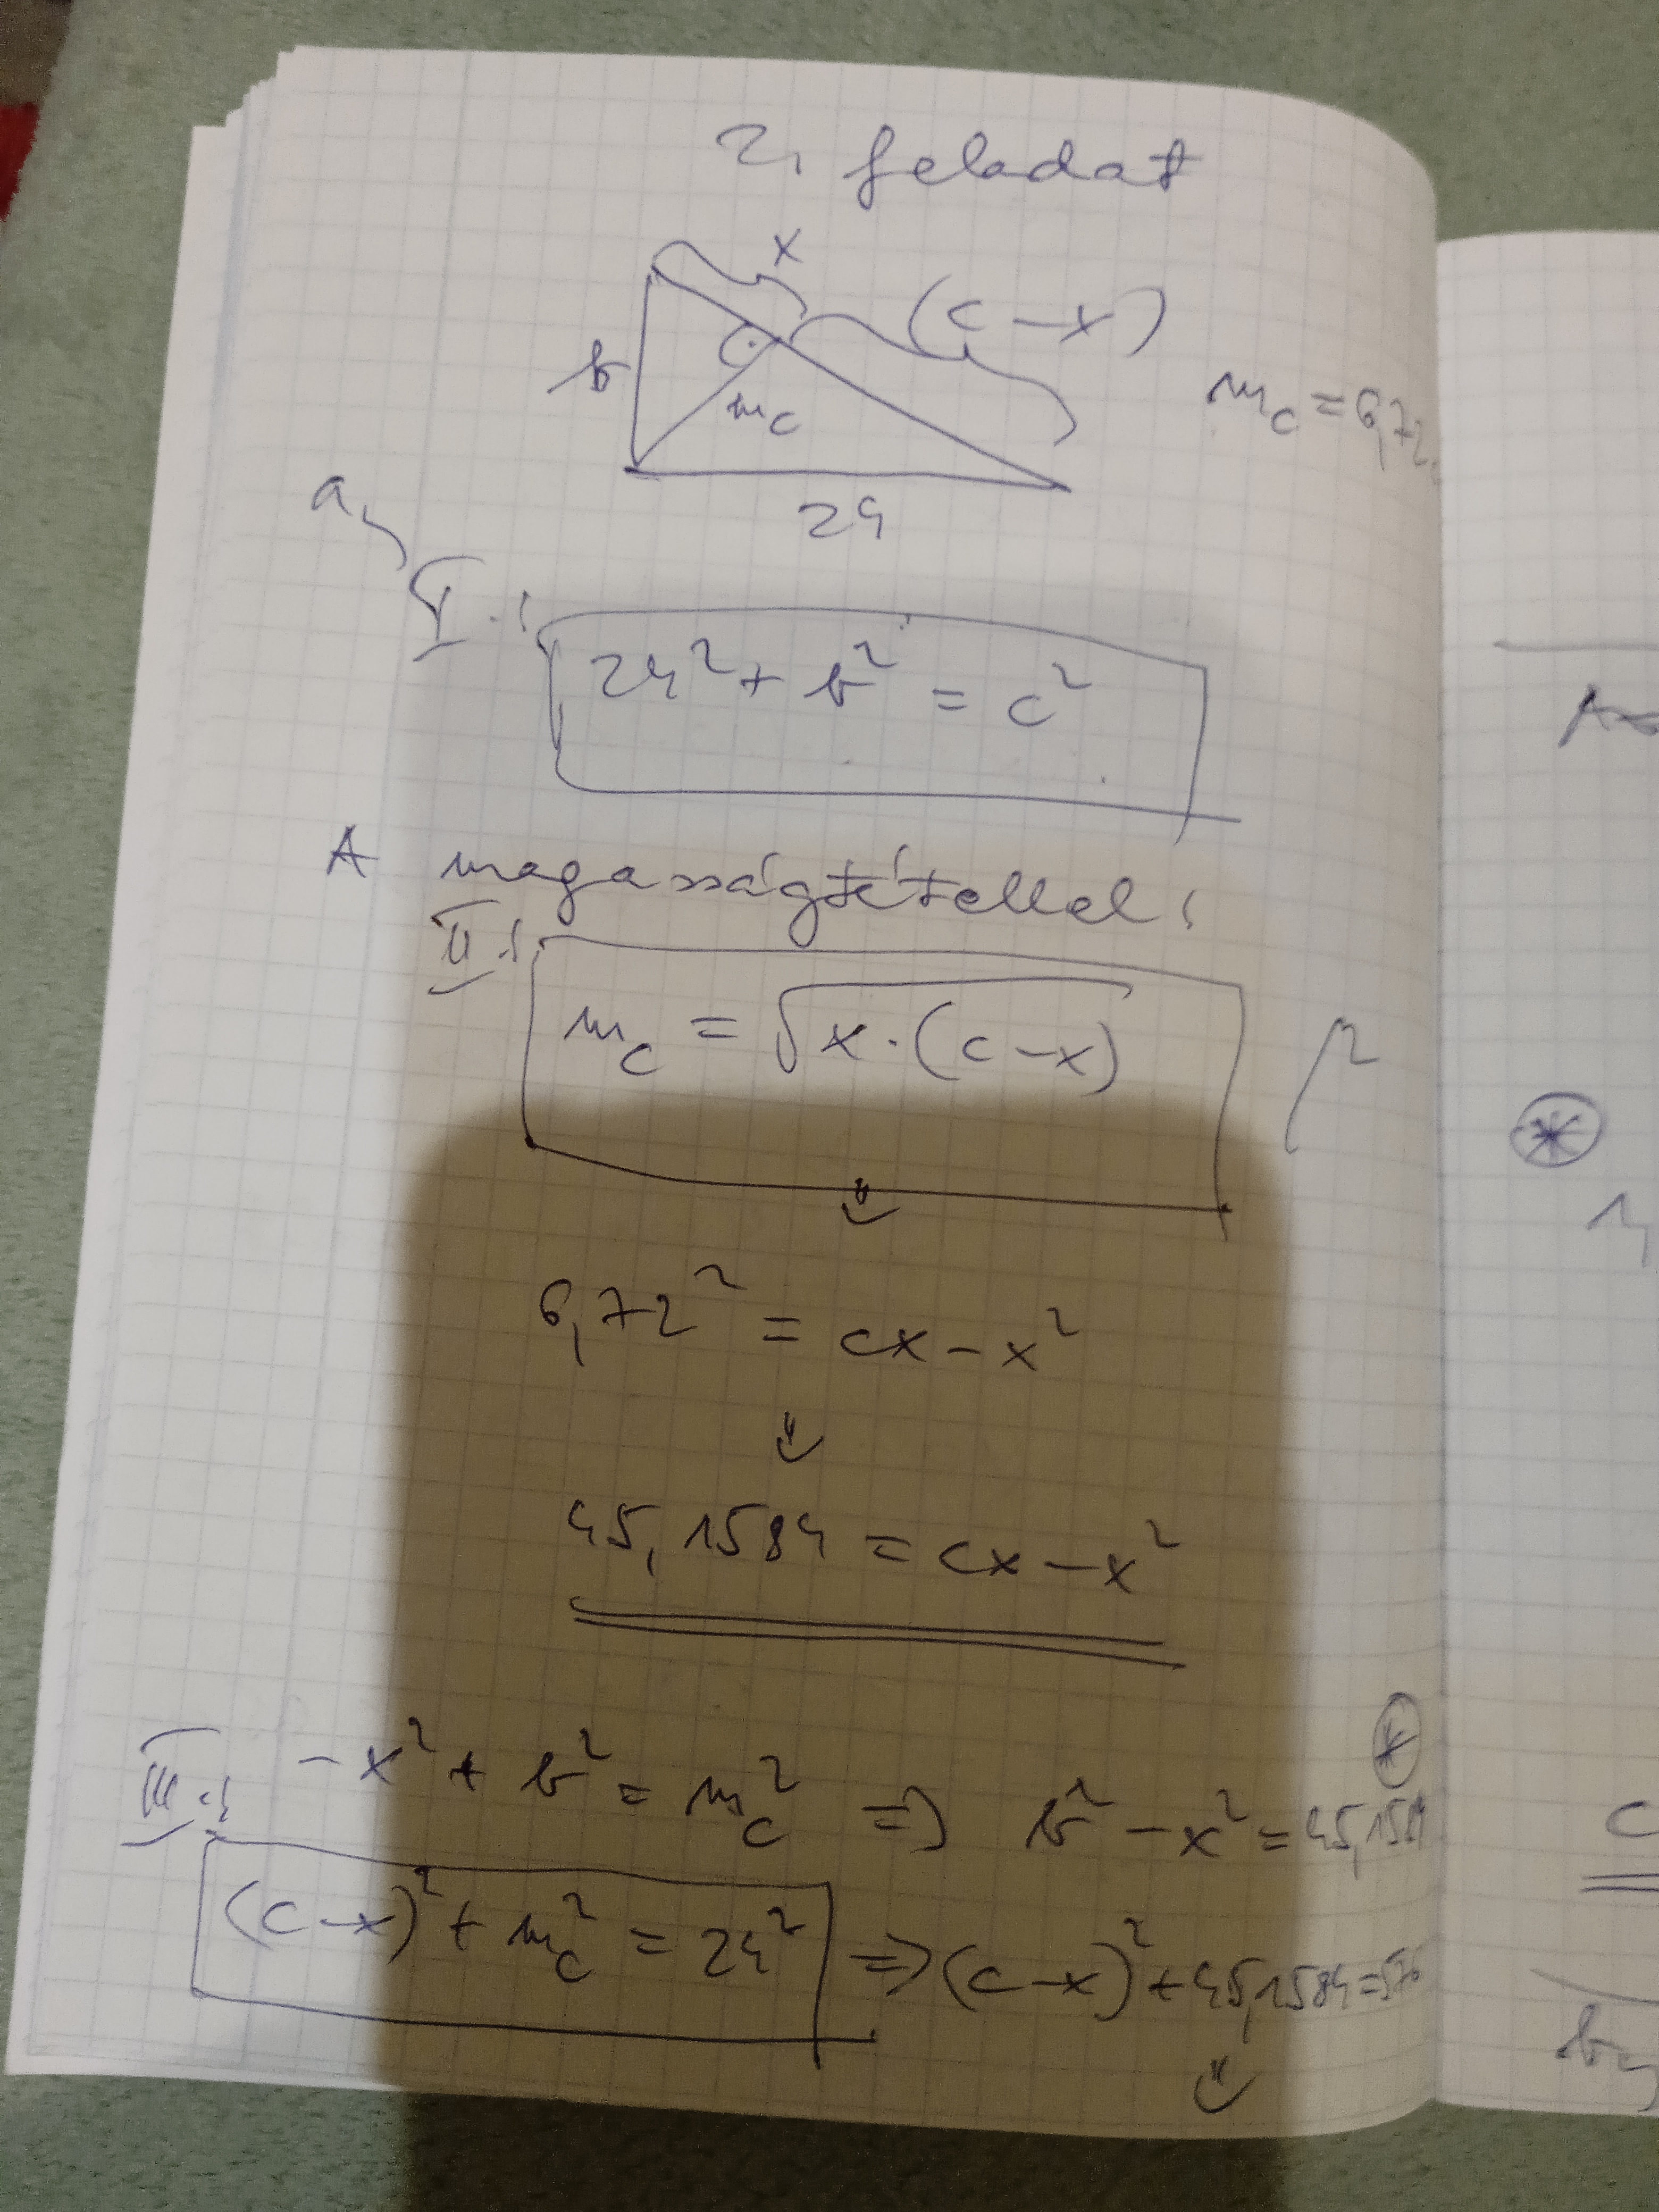 2, feladat
x
(c-x)
b
m_c
m_c = 6,72
24
a,
I.:
24² + b² = c²
A magasságtétellel:
II.:
m_c = √x·(c-x) /²
⇓
6,72² = cx - x²
⇓
45,1584 = cx - x²
*
III.: -x² + b² = m_c² ⇒ b² - x² = 45,1584
(c-x)² + m_c² = 24² ⇒ (c-x)² + 45,1584 = 576
⇓
*
1,
c
b,